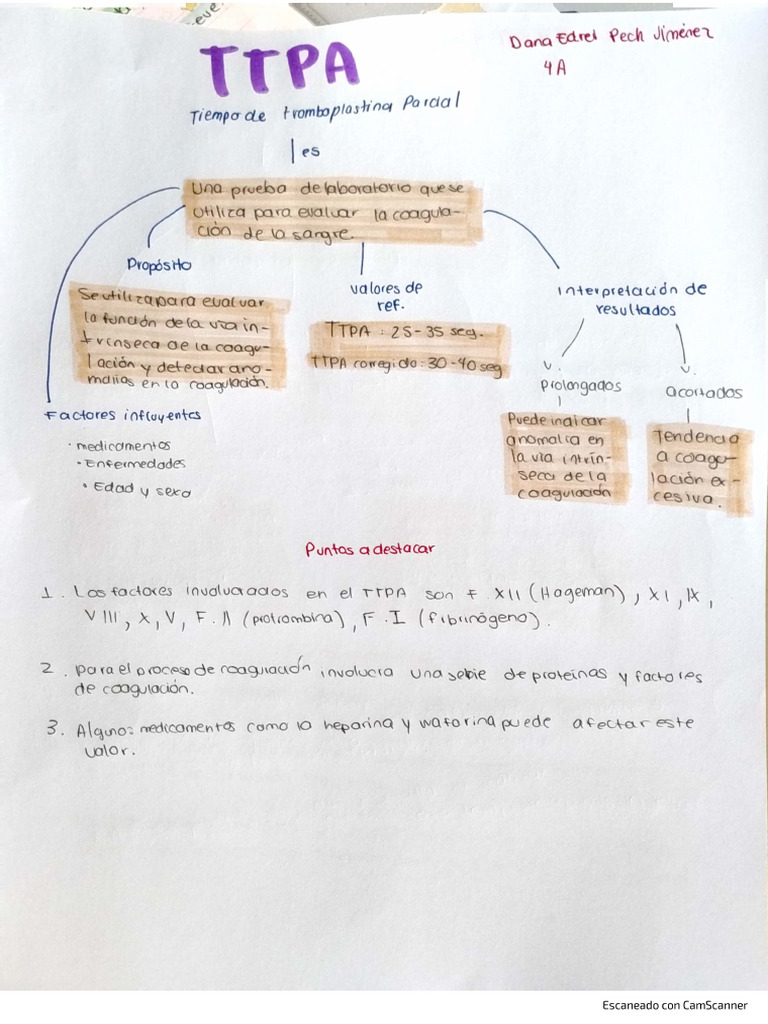 eve.
Dana Edrel Pech Jiménez
4A
TTPA
Tiempo de tromboplastina Parcial
es
Una prueba de laboratorio que se
utiliza para evaluar la coagula-
ción de la sangre.
Propósito
Se utiliza para evaluar
la función de la vía in-
trínseca de la coagu-
lación y detectar ano-
malias en la coagulación.
valores de
ref.
TTPA : 25 - 35 seg.
TTPA corregido: 30 - 40 seg
Interpretación de
resultados
v.
prolongados
Puede indicar
anomalía en
la vía intrín-
seca de la
coagulación
v.
acortados
Tendencia
a coagu-
lación ex-
cesiva.
Factores influyentes
· medicamentos
· Enfermedades
· Edad y sexo
Puntos a destacar
1. Los factores involucrados en el TTPA son F. XII (Hageman), XI, IX,
VIII, X, V, F. II (protrombina), F. I (fibrinógeno).
2. para el proceso de coagulación involucra una serie de proteínas y factores
de coagulación.
3. Algunos medicamentos como la heparina y waforina puede afectar este
valor.
Escaneado con CamScanner